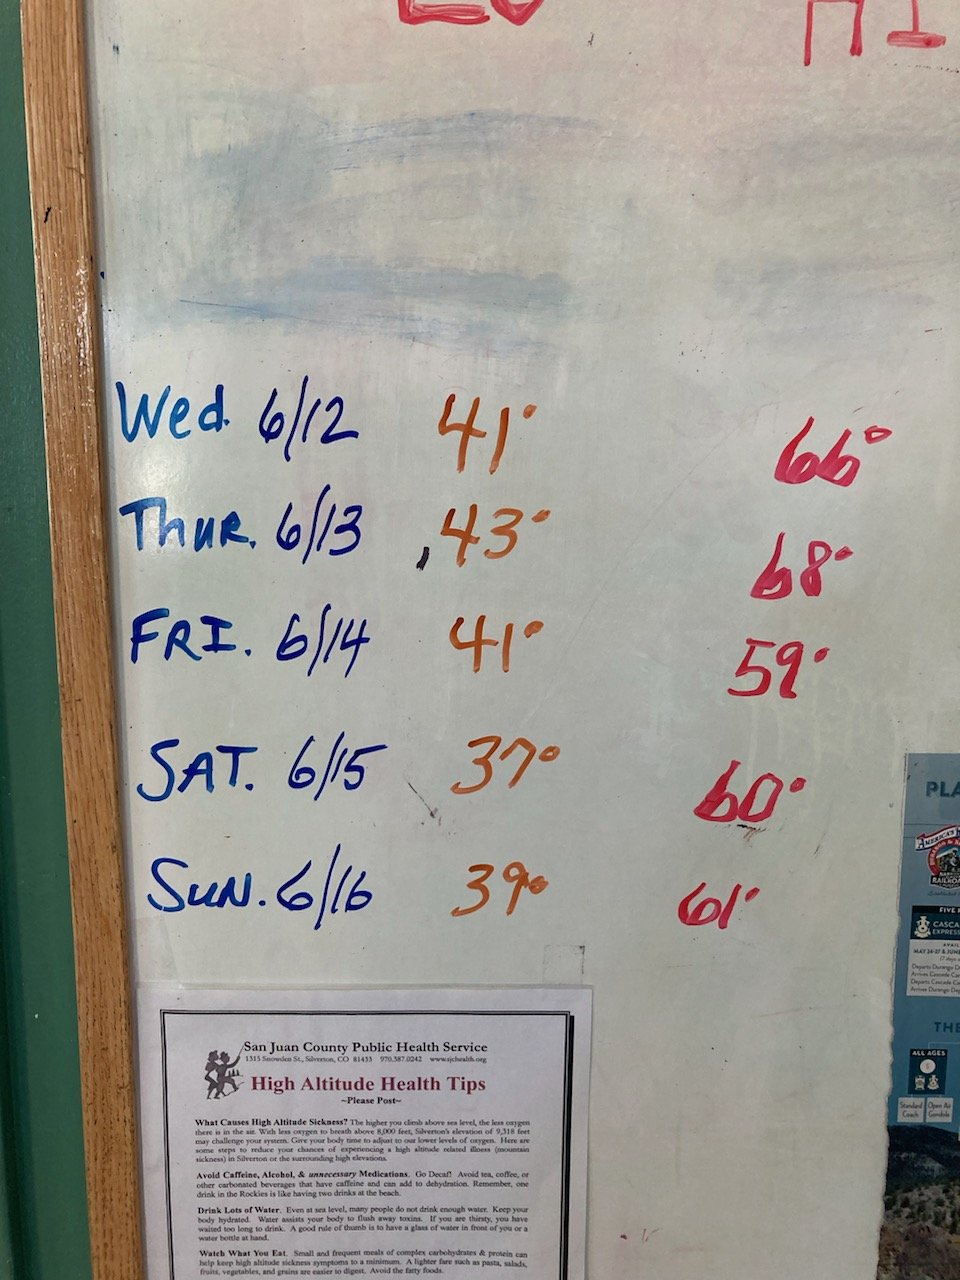 LO HI
Wed. 6/12 41° 66°
THUR. 6/13 43° 68°
FRI. 6/14 41° 59°
SAT. 6/15 37° 60°
SUN. 6/16 39° 61°
San Juan County Public Health Service
1315 Snowden St., Silverton, CO 81433 970.387.0242 www.sjchealth.org
High Altitude Health Tips
~Please Post~
What Causes High Altitude Sickness? The higher you climb above sea level, the less oxygen
there is in the air. With less oxygen to breath above 8,000 feet, Silverton's elevation of 9,318 feet
may challenge your system. Give your body time to adjust to our lower levels of oxygen. Here are
some steps to reduce your chances of experiencing a high altitude related illness (mountain
sickness) in Silverton or the surrounding high elevations.
Avoid Caffeine, Alcohol, & unnecessary Medications. Go Decaf! Avoid tea, coffee, or
other carbonated beverages that have caffeine and can add to dehydration. Remember, one
drink in the Rockies is like having two drinks at the beach.
Drink Lots of Water. Even at sea level, many people do not drink enough water. Keep your
body hydrated. Water assists your body to flush away toxins. If you are thirsty, you have
waited too long to drink. A good rule of thumb is to have a glass of water in front of you or a
water bottle at hand.
Watch What You Eat. Small and frequent meals of complex carbohydrates & protein can
help keep high altitude sickness symptoms to a minimum. A lighter fare such as pasta, salads,
fruits, vegetables, and grains are easier to digest. Avoid the fatty foods.
PLA
AMERICA'S
RAILROA
FIVE
CASCA
EXPRESS
AVAIL
MAY 24-27 & JUNE
(7 days
Departs Durango De
Arrives Cascade Ca
Departs Cascade Ca
Arrives Durango Dep
THE
ALL AGES
Standard
Coach
Open Air
Gondola